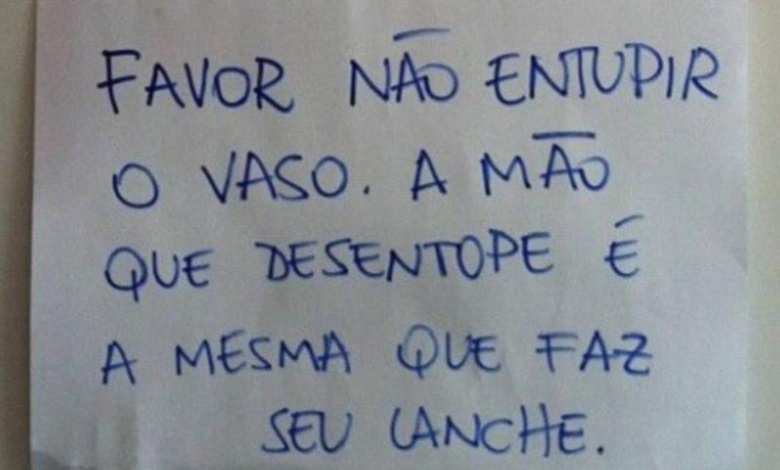 FAVOR NÃO ENTUPIR
O VASO. A MÃO
QUE DESENTOPE É
A MESMA QUE FAZ
SEU LANCHE.